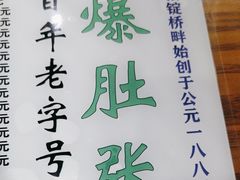 锭桥畔始创于公元一八八
爆肚张
百年老字号
元
元
元
元
元
元
元
元
元